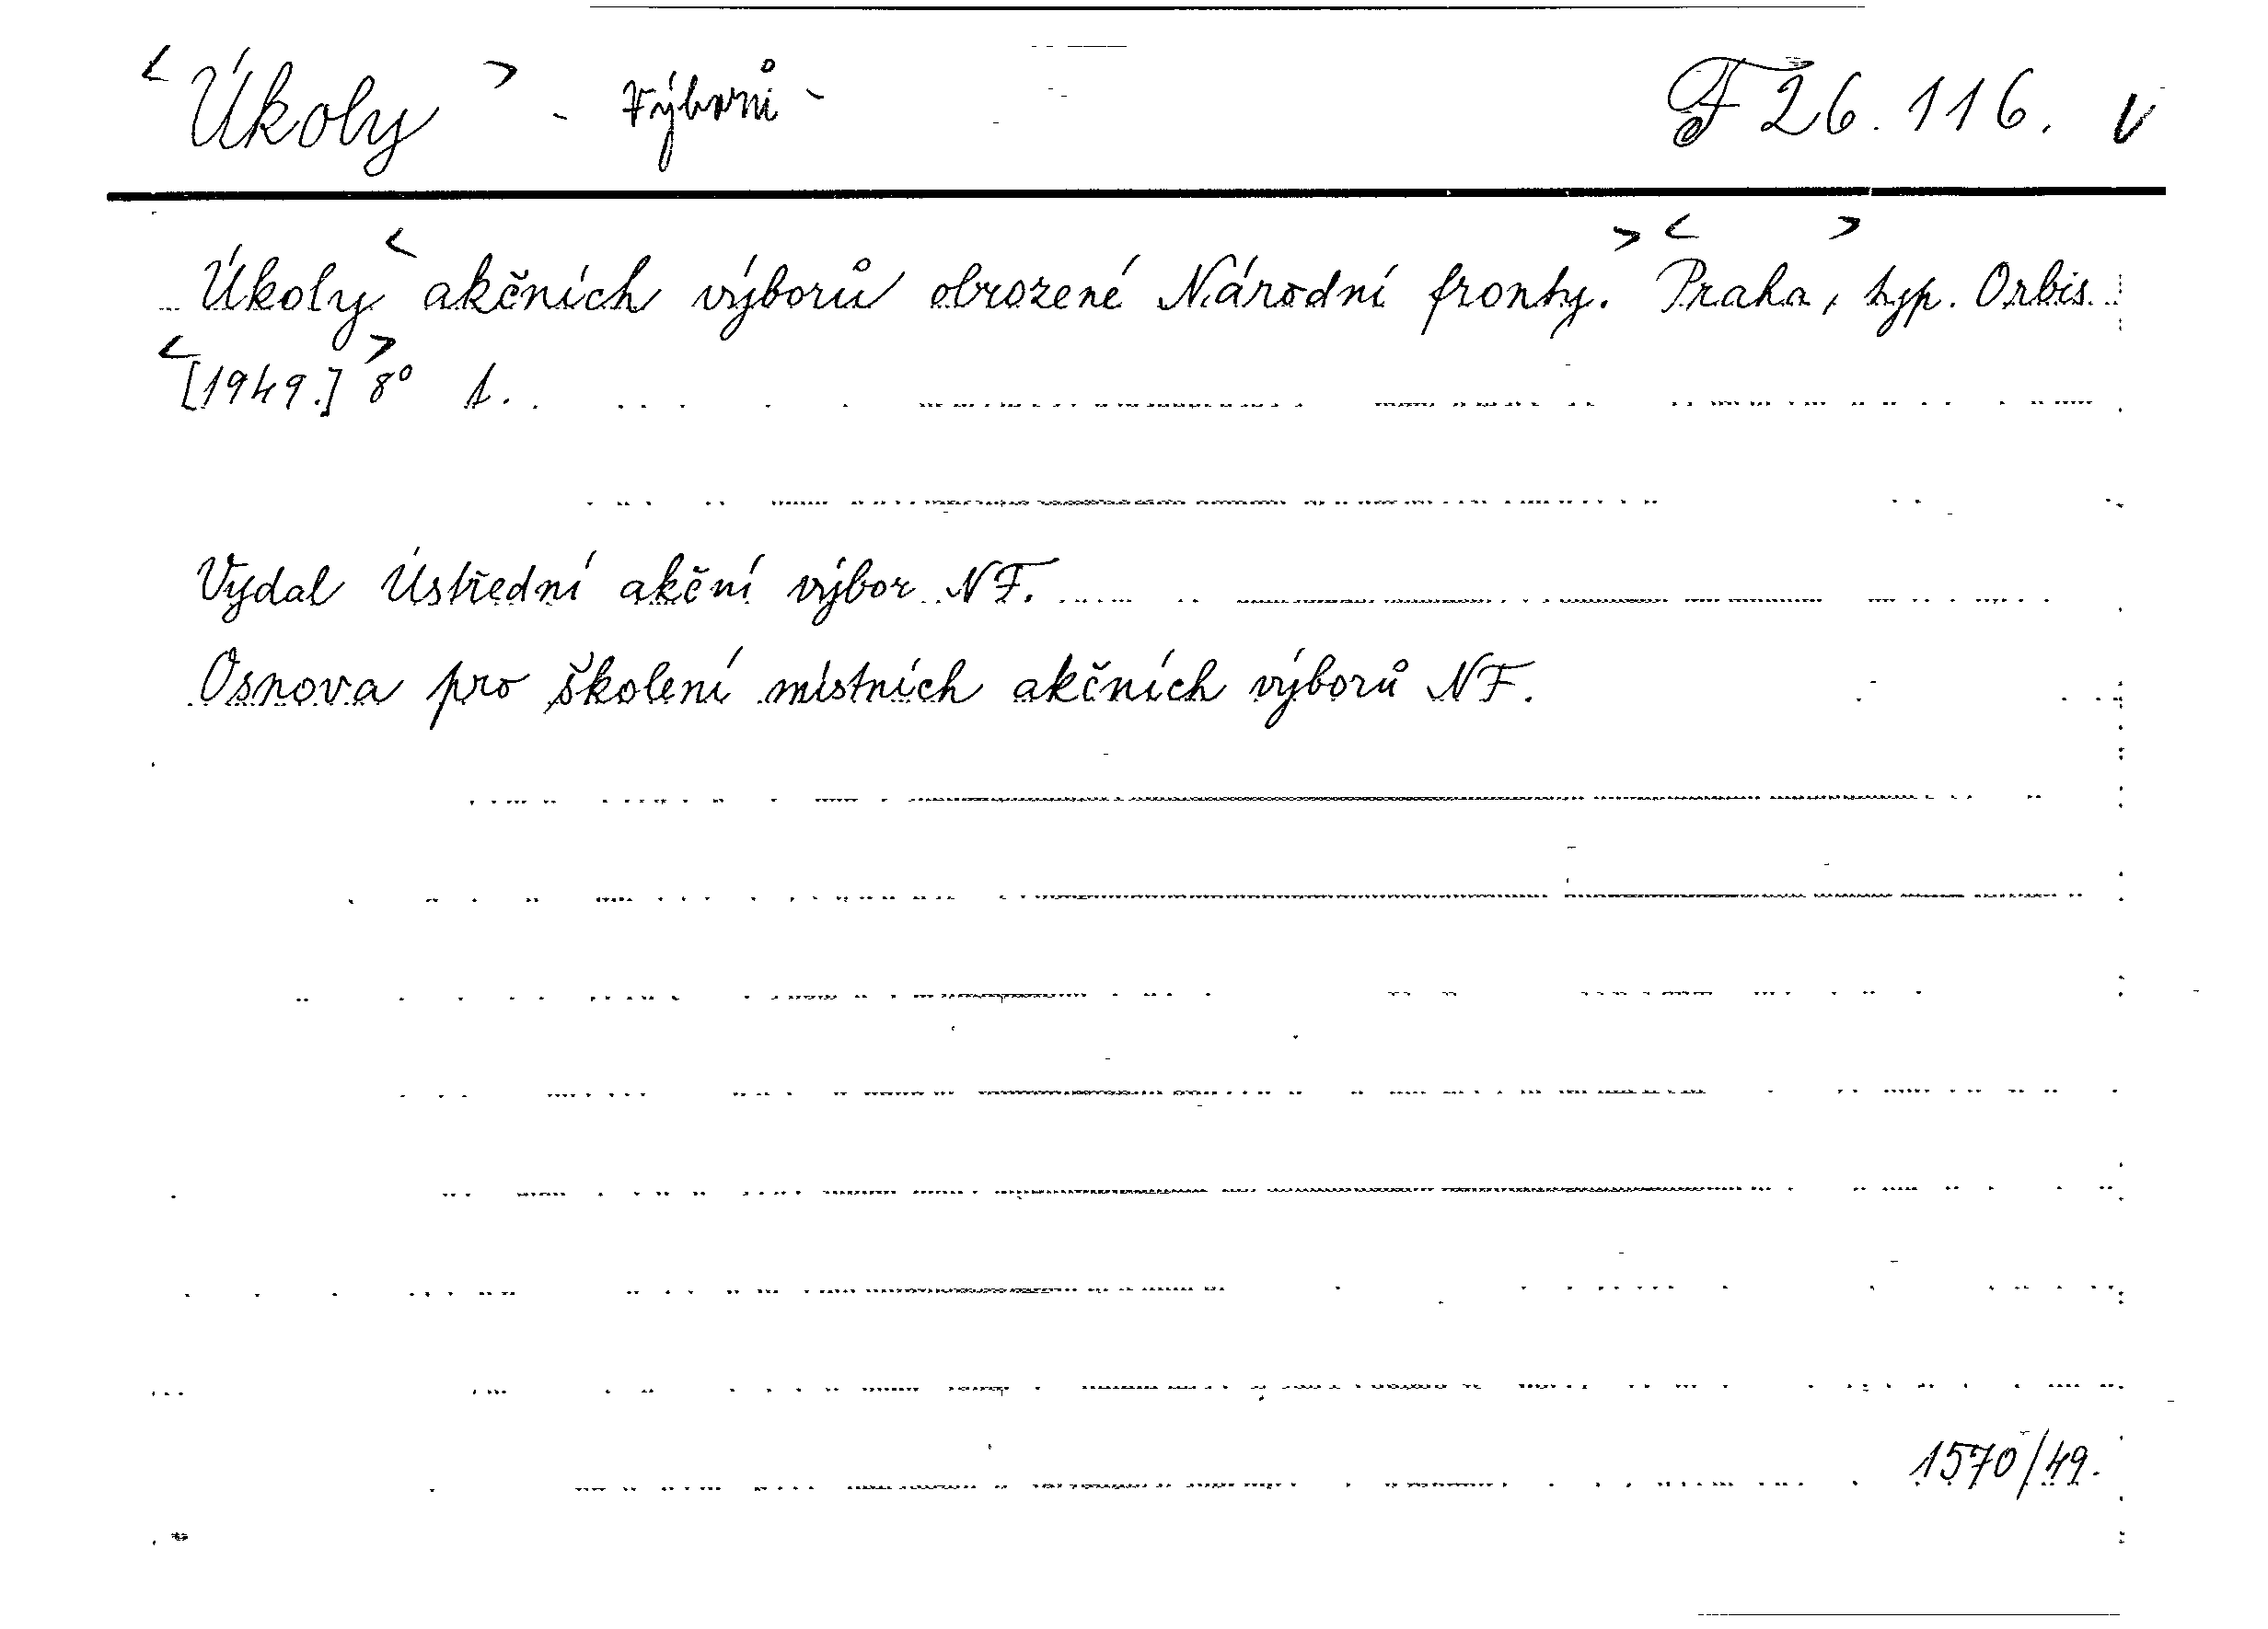 <Úkoly> - Výborů - F 26.116. V
Úkoly <akčních výborů obrozené Národní fronty.> <Praha>, typ. Orbis.
<[1949.]> 8° 1.
Vydal Ústřední akční výbor NF.
Osnova pro školení místních akčních výborů NF.
1570/49.